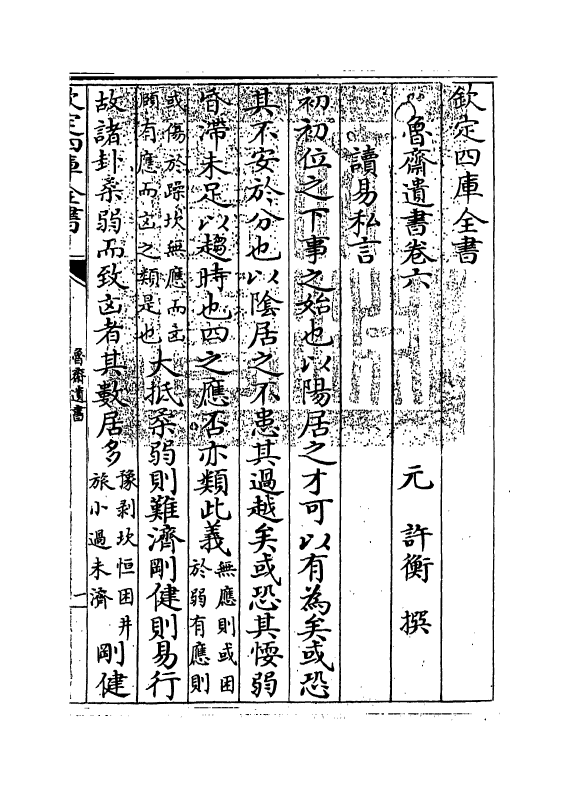 欽定四庫全書
魯齋遺書卷六
元 許衡 撰
讀易私言
初初位之下事之始也以陽居之才可以有為矣或恐
其不安於分也以陰居之不患其過越矣或恐其愞弱
昏滯未足以趨時也四之應否亦類此義無應則或困
於弱有應則
或傷於躁坎無應而凶
頤有應而凶之類是也大抵柔弱則難濟剛健則易行
故諸卦柔弱而致凶者其數居多豫剥坎恒困井
旅小過未濟剛健
欽定四庫全書
魯齋遺書
一